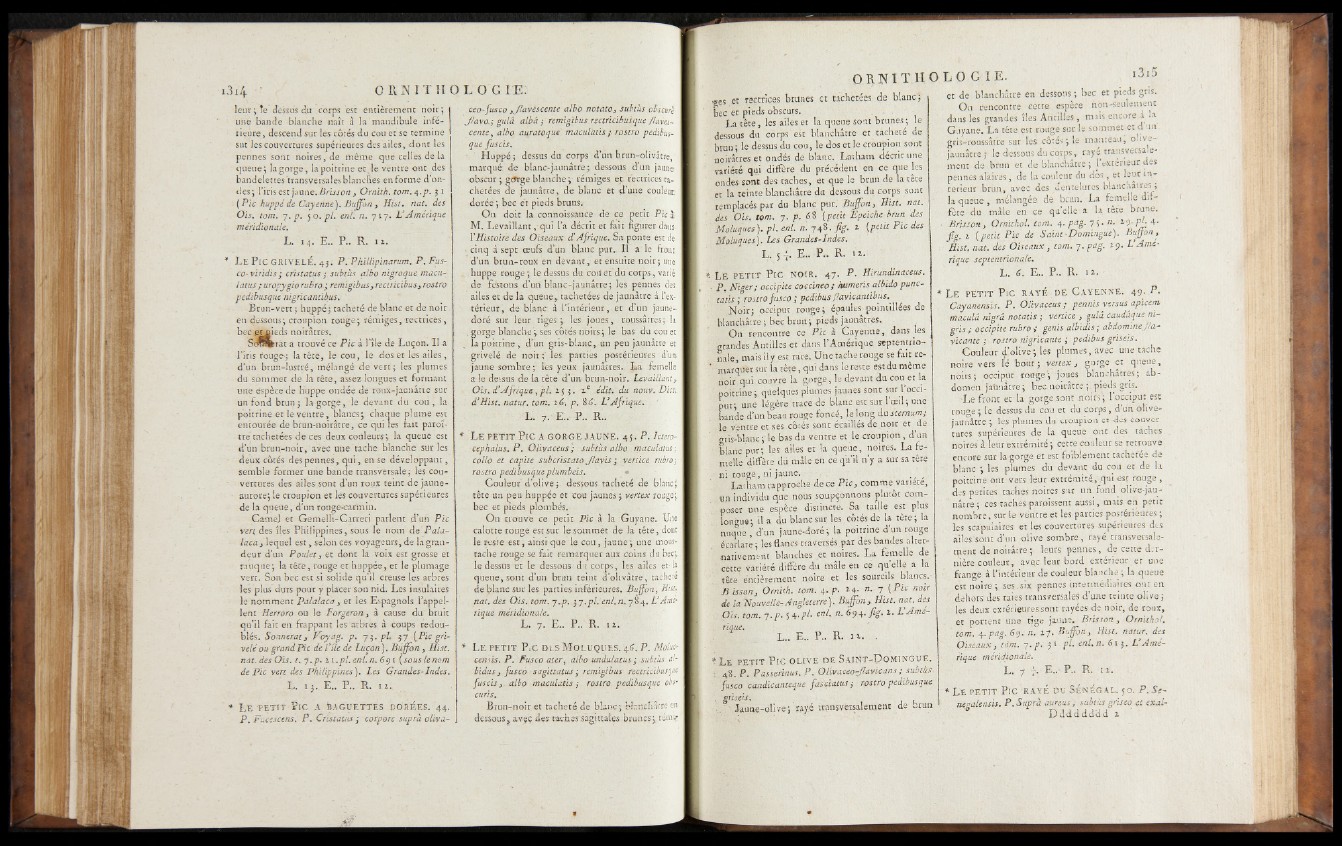 1314 ORNITHOLOGIE.
leur; le dessus du corps est entièrement noir;
une bande blanche naît à la mandibule infé-
rieure, descend sur les côtés du cou et se termine
sur les couvertures supérieures des ailes, dont les
pennes sont noires, de même que celles de la
queue; la gorge, la poitrine et le ventre ont des
bandelettes transversales blanches en forme d'on-
des; l'iris est jaune. Brisson, Ornith. tom. 4. p. 31
(Pic huppé de Cayenne). Buffon, Hist. nat. des
Ois. tom. 7. p. 50. pl. enl. n. 717. L'Amérique
méridionale.
L. 14. E.. P.. R. 12.
* LE PIC GRIVELÉ. 43. P. Phillipinarum. P. Fus-
co-viridis; cristatus; subtùs albo nigroque macu-
latus; uropygio rubro; remigibus, rectricibus, rostro
pedibusque nigricantibus.
Brun-vert; huppé; tacheté de blanc et de noir
en dessous; croupion rouge; rémiges, rectrices,
bec et pieds noirâtres.
Sonnerat a trouvé ce Pic à l'île de Luçon. Il a
l'iris rouge; la tête, le cou, le dos et les ailes,
d'un brun-lustré, mélangé de vert; les plumes
du sommet de la tête, assez longues et formant
une espèce de huppe ondée de roux-jaunâtre sur
un fond brun; la gorge, le devant du cou, la
poitrine et le ventre, blancs; chaque plume est
entourée de brun-noirâtre, ce qui les fait paroî-
tre tachetées de ces deux couleurs; la queue est
d'un brun-noir, avec une tache blanche sur les
deux côtés des pennes, qui, en se développant,
semble former une bande transversale; les cou-
vertures des ailes sont d'un roux teint de jaune-
aurore; le croupion et les couvertures supérieures
de la queue, d'un rouge-carmin.
Camel et Gemelli-Carreri parlent d'un Pic
vert des îles Phillippines, sous le nom de Pala-
laca, lequel est, selon ces voyageurs, de la gran-
deur d'un Poulet, et dont la voix est grosse et
rauque; la tête, rouge et huppée, et le plumage
vert. Son bec est si solide qu'il creuse les arbres
les plus durs pour y placer son nid. Les insulaires
le nomment Palalaca, et les Espagnols l'appel-
lent Herroro ou le Forgeron, à cause du bruit
qu'il fait en frappant les arbres à coups redou-
blés. Sonnerat, Voyag. p. 73. pl. 37 (Pic gri-
velé ou grand Pic de l'île de Luçon). Buffon, Hist.
nat. des Ois. t. 7. p. 21. pl. enl. n. 691 (sous le nom
de Pic vert des Philippines). Les Grandes-Indes.
L. 13. E.. P.. R. 12.
* LE PETIT PIC A BAGUETTES DORÉES. 44.
P. Fuscescens. P. Cristatus; corpore suprà oliva-
ceo-fusco, flavescente albo notato, subtùs obscurè
flavo; gulâ albâ; remigibus rectricibusque flaves-
cente, albo auratoque maculatis; rostro pedibus-
que fuscis.
Huppé; dessus du corps d'un brun-olivâtre,
marqué de blanc-jaunâtre; dessous d'un jaune-
obscur; gorge blanche; rémiges et rectrices ta-
chetées de jaunâtre, de blanc et d'une couleur
dorée; bec et pieds bruns.
On doit la connoissance de ce petit Pic à
M. Levaillant, qui l'a décrit et fait figurer dans
l'Histoire des Oiseaux d'Afrique. Sa ponte est de
cinq à sept œufs d'un blanc pur. Il a le front
d'un brun-roux en devant, et ensuite noir; une
huppe rouge; le dessus du cou et du corps, varié
de festons d'un blanc-jaunâtre; les pennes des
ailes et de la queue, tachetées de jaunâtre à l'ex-
térieur, de blanc à l'intérieur, et d'un jaune-
doré sur leur tiges; les joues, roussâtres; la
gorge blanche; ses côtés noirs; le bas du cou et
la poitrine, d'un gris-blanc, un peu jaunâtre et
grivelé de noir; les parties postérieures d'un
jaune sombre; les yeux jaunâtres. La femelle
a le dessus de la tête d'un brun-noir. Levaillant,
Ois. d'Afrique, pl. 253. 2e édit. du nouv. Dict.
d'Hist. natur. tom. 26. p. 86. L'Afrique.
L. 7. E.. P.. R..
* LE PETIT PIC A GORGE JAUNE. 45. P. Ictero-
cephalus. P. Olivaceus; subtùs albo maculatus;
collo et capite subcristato flavis; vertice rubro;
rostro pedibusque plumbeis.
Couleur d'olive; dessous tacheté de blanc;
tête un peu huppée et cou jaunes; vertex rouge;
bec et pieds plombés.
On trouve ce petit Pic à la Guyane. Une
calotte rouge est sur le sommet de la tête, dont
le reste est, ainsi que le cou, jaune; une mous-
tache rouge se fait remarquer aux coins du bec;
le dessus et le dessous du corps, les ailes et la
queue, sont d'un brun teint d'olivâtre, tacheté
de blanc sur les parties inférieures. Buffon, Hist.
nat. des Ois. tom. 7. p. 37. pl. enl. n. 784. L'Amé-
rique méridionale.
L. 7. E.. P.. R. 12.
* LE PETIT PIC DES MOLUQUES. 46. P. Moluc-
censis. P. Fusco ater, albo undulatus; subtùs al-
bidus, fusco sagittatus; remigibus rectricibusque
fuscis, albo maculatis; rostro pedibusque obs-
curis.
Brun-noir et tacheté de blanc; blanchâtre en
dessous, avec des taches sagittales brunes; rémi-
ORNITHOLOGIE. 1315
ges et rectrices brunes et tachetées de blanc;
bec et pieds obscurs.
La tête, les ailes et la queue sont brunes; le
dessous du corps est blanchâtre et tacheté de
brun; le dessus du cou, le dos et le croupion sont
noirâtres et ondés de blanc. Latham décrit une
variété qui diffère du précédent en ce que les
ondes sont des taches, et que le brun de la tête
et la teinte blanchâtre du dessous du corps sont
remplacés par du blanc pur. Buffon, Hist. nat.
des Ois. tom. 7. p. 68 (petit Epeiche brun des
Moluques). pl. enl. n. 748. fig. 2 (petit Pic des
Moluques). Les Grandes-Indes.
L. 5 ½. E.. P.. R. 12.
* LE PETIT PIC NOIR. 47. P. Hirundinaceus.
P. Niger; occipite coccineo; humeris albido punc-
tatis; rostro fusco; pedibus flavicantibus.
Noir; occiput rouge; épaules pointillées de
blanchâtre; bec brun; pieds jaunâtres.
On rencontre ce Pic à Cayenne, dans les
grandes Antilles et dans l'Amérique septentrio-
nale, mais il y est rare. Une tache rouge se fait re-
marquer sur la tête, qui dans le reste est du même
noir qui couvre la gorge, le devant du cou et la
poitrine; quelques plumes jaunes sont sur l'occi-
put; une légère trace de blanc est sur l'œil; une
bande d'un beau rouge foncé, le long du sternum;
le ventre et ses côtés sont écaillés de noir et de
gris-blanc; le bas du ventre et le croupion, d'un
blanc pur; les ailes et la queue, noires. La fe-
melle diffère du mâle en ce qu'il n'y a sur sa tête
ni rouge, ni jaune.
Latham rapproche de ce Pic, comme variété,
un individu que nous soupçonnons plutôt com-
poser une espèce distincte. Sa taille est plus
longue; il a du blanc sur les côtés de la tête; la
nuque, d'un jaune-doré; la poitrine d'un rouge
écarlate; les flancs traversés par des bandes alter-
nativement blanches et noires. La femelle de
cette variété diffère du mâle en ce qu'elle a la
tête entièrement noire et les sourcils blancs.
Brisson, Ornith. tom. 4. p. 24. n. 7 (Pic noir
de la Nouvelle-Angleterre). Buffon, Hist. nat. des
Ois. tom. 7. p. 54. pl. enl. n. 694. fig. 2. L'Amé-
rique.
L.. E.. P.. R. 12.
* LE PETIT PIC OLIVE DE SAINT-DOMINGUE.
48. P. Passerinus. P. Olivaceo-flavicans; subtùs
fusco candicanteque fasciatus; rostro pedibusque
griseis.
Jaune-olive; rayé transversalement de brun
et de blanchâtre en dessous; bec et pieds gris.
On rencontre cette espèce non-seulement
dans les grandes îles Antilles, mais encore à la
Guyane. La tête est rouge sur le sommet et d'un
gris-roussâtre sur les côtés; le manteau, olive-
jaunâtre; le dessous du corps, rayé transversale-
ment de brun et de blanchâtre; l'extérieur des
pennes alaires, de la couleur du dos, et leur in-
térieur brun, avec des dentelures blanchâtres;
la queue, mélangée de brun. La femelle dif-
fère du mâle en ce qu'elle a la tête brune.
Brisson, Ornithol. tom. 4. pag. 75. n. 29. pl. 4.
fig. 2 (petit Pic de Saint-Domingue). Buffon,
Hist. nat. des Oiseaux, tom. 7. pag. 29. L'Amé-
rique septentrionale.
L. 6. E.. P.. R. 12.
* LE PETIT PIC RAYÉ DE CAYENNE. 49. P.
Cayanensis. P. Olivaceus; pennis versus apicem
maculâ nigrâ notatis; vertice, gulâ caudâque ni-
gris; occipite rubro; genis albidis; abdomine fla-
vicante; rostro nigricante; pedibus griseis.
Couleur d'olive; les plumes, avec une tache
noire vers le bout; vertex, gorge et queue,
noirs; occiput rouge; joues blanchâtres; ab-
domen jaunâtre; bec noirâtre; pieds gris.
Le front et la gorge sont noirs; l'occiput est
rouge; le dessus du cou et du corps, d'un olive-
jaunâtre; les plumes du croupion et des couver-
tures supérieures de la queue ont des taches
noires à leur extrémité; cette couleur se retrouve
encore sur la gorge et est foiblement tachetée de
blanc; les plumes du devant du cou et de la
poitrine ont vers leur extrémité, qui est rouge,
des petites taches noires sur un fond olive-jau-
nâtre; ces taches paroissent aussi, mais en petit
nombre, sur le ventre et les parties postérieures;
les scapulaires et les couvertures supérieures des
ailes sont d'un olive sombre, rayé transversale-
ment de noirâtre; leurs pennes, de cette der-
nière couleur, avec leur bord extérieur et une
frange à l'intérieur de couleur blanche; la queue
est noire; ses six pennes intermédiaires ont en
dehors des raies transversales d'une teinte olive;
les deux extérieures sont rayées de noir, de roux,
et portent une tige jaune. Brisson, Ornithol.
tom. 4. pag. 69. n. 27. Buffon, Hist. natur. des
Oiseaux, tom. 7. p. 31 pl. enl. n. 613. L'Amé-
rique méridionale.
L. 7 ½. E.. P.. R. 12.
* LE PETIT PIC RAYÉ DU SÉNÉGAL. 50. P. Se-
negalensis. P. Suprà aureus, subtùs griseo et exal-
Ddddddd 2